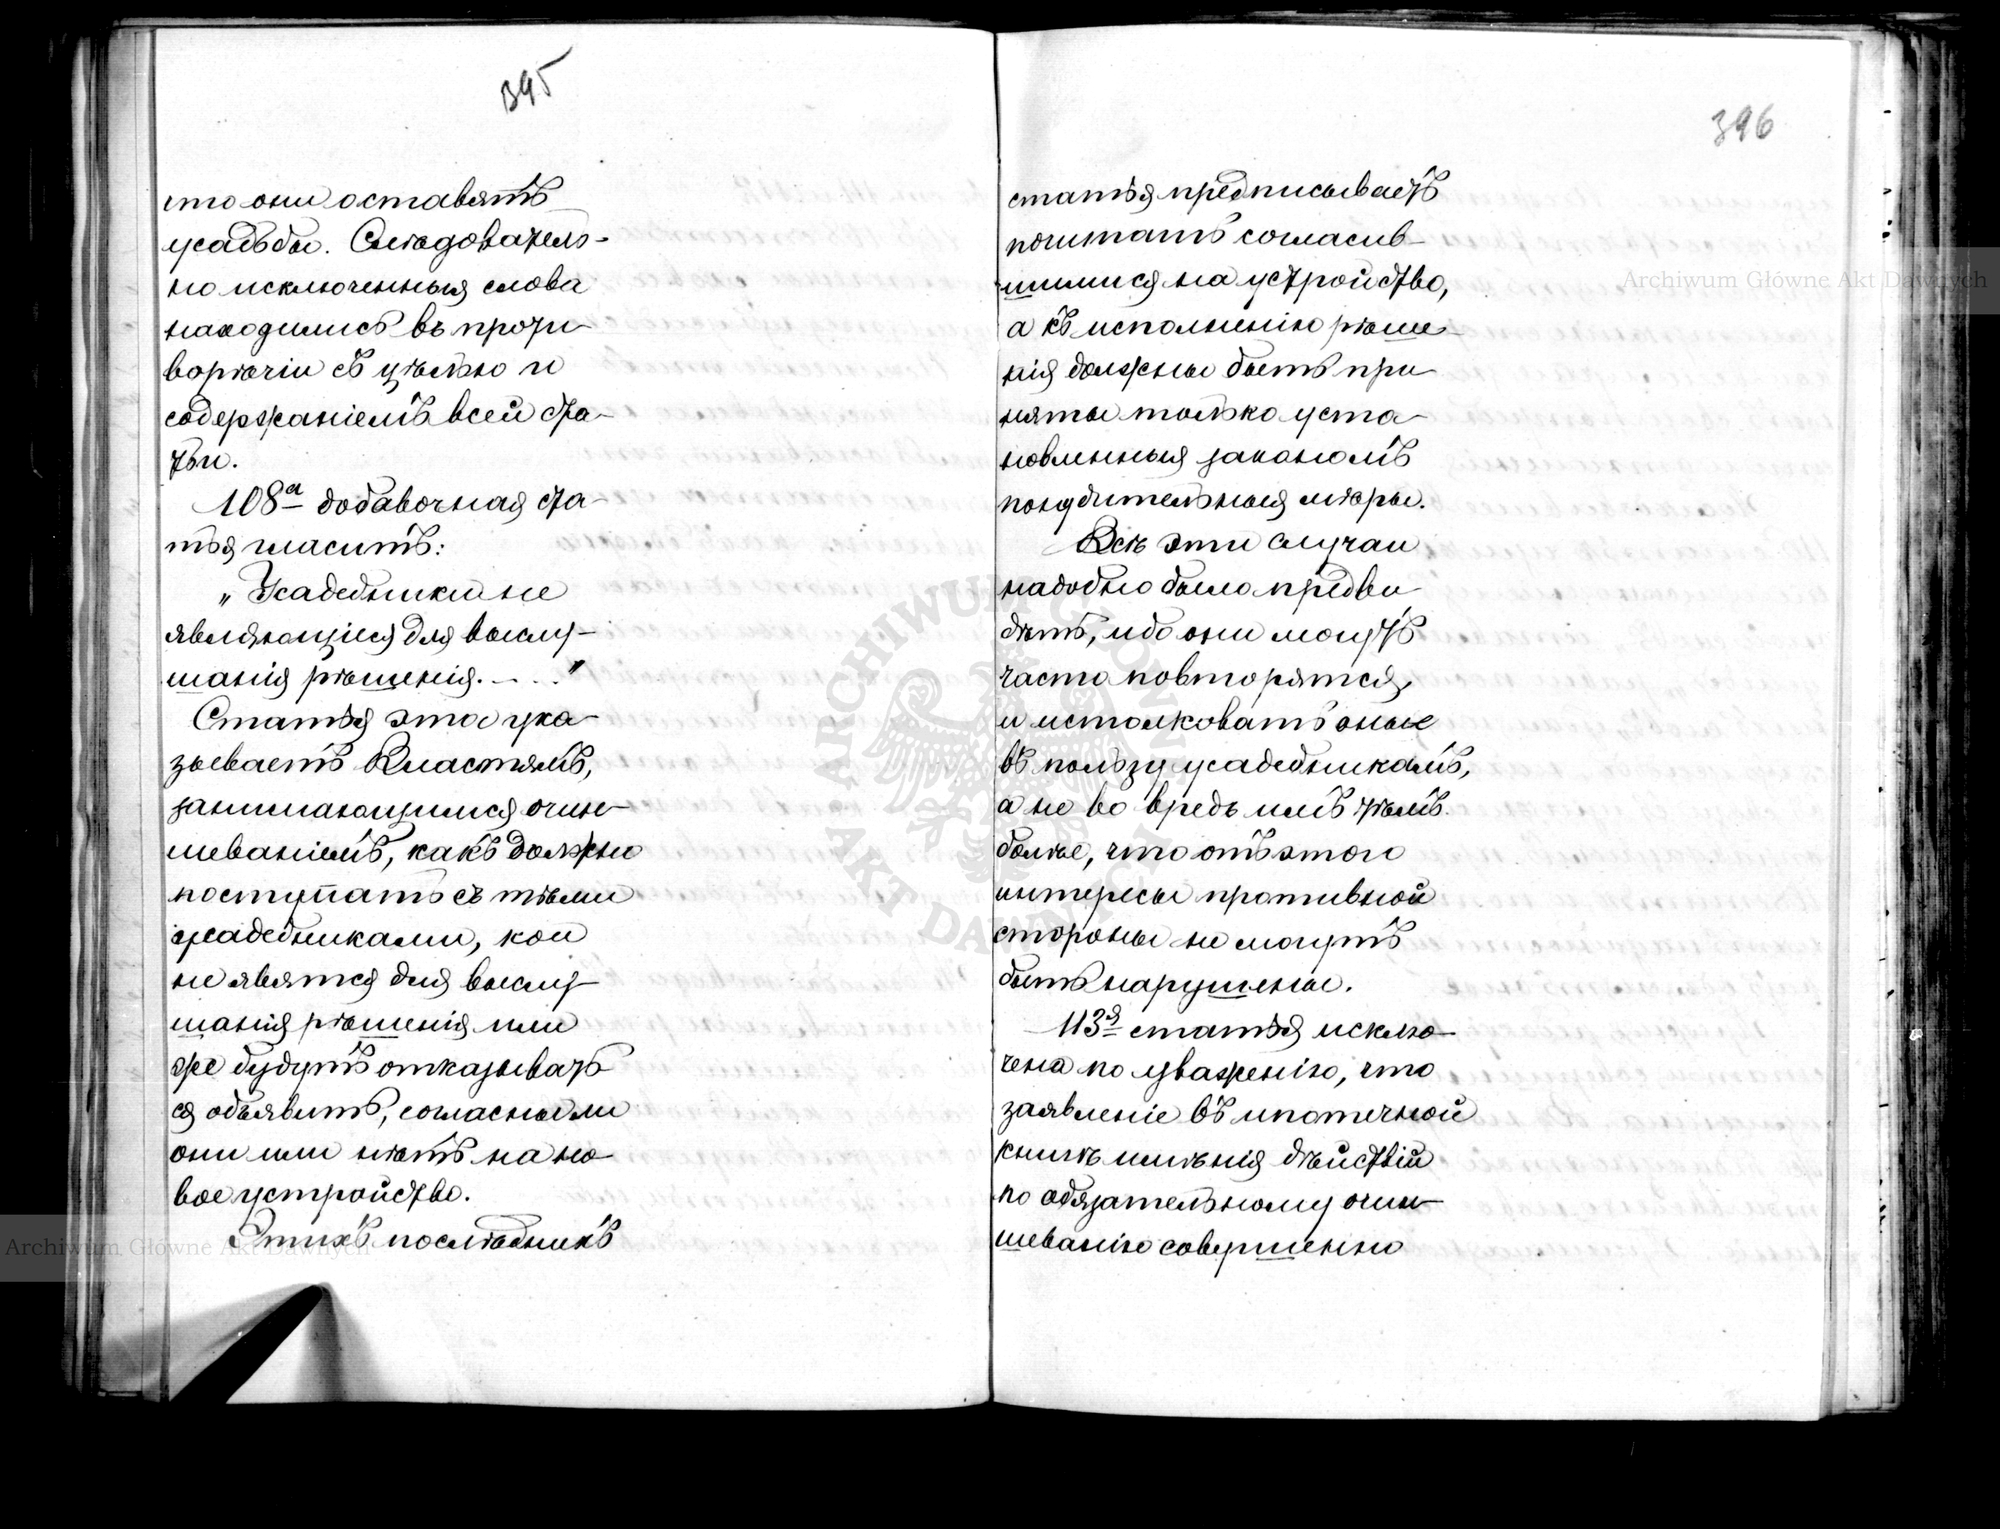 395
что они оставятъ
усадьбы. Слѣдователь-
но исключенныя слова
находились въ проти-
ворѣчіи съ цѣлью и
содержаніемъ всей ста-
тьи.
108ª добавочная ста-
тья гласитъ:
„Усадебники не
являющіеся для выслу-
шанія рѣшенія. — . . "
Статья эта ука-
зываетъ Властямъ,
занимающимся очин-
шеваніемъ, какъ должно
поступать съ тѣми
усадебниками, кои
не явятся для выслу-
шанія рѣшенія или
же будутъ отказывать
ся объявить, согласны ли
они или нѣтъ на но-
вое устройство.
Этихъ послѣднихъ
396
статья предписываетъ
почитать согласив-
шимися на устройство,
а къ исполненію рѣше-
нія должны быть при-
няты только уста-
новленныя закономъ
понудительныя мѣры.
Всѣ эти случаи
надобно было предви-
дѣть, ибо они могутъ
часто повторятся,
и истолковать оные
въ пользу усадебникамъ,
а не во вредъ имъ тѣмъ
болѣе, что отъ этого
интересы противной
стороны не могутъ
быть нарушены.
113я статья исклю-
чена по уваженію, что
заявленіе въ ипотечной
книгѣ имѣнія дѣйствій
по обязательному очин-
шеванію совершенно
ARCHIWUM GŁÓWNE AKT DAWNYCH
Archiwum Główne Akt Dawnych
Archiwum Główne Akt Dawnych